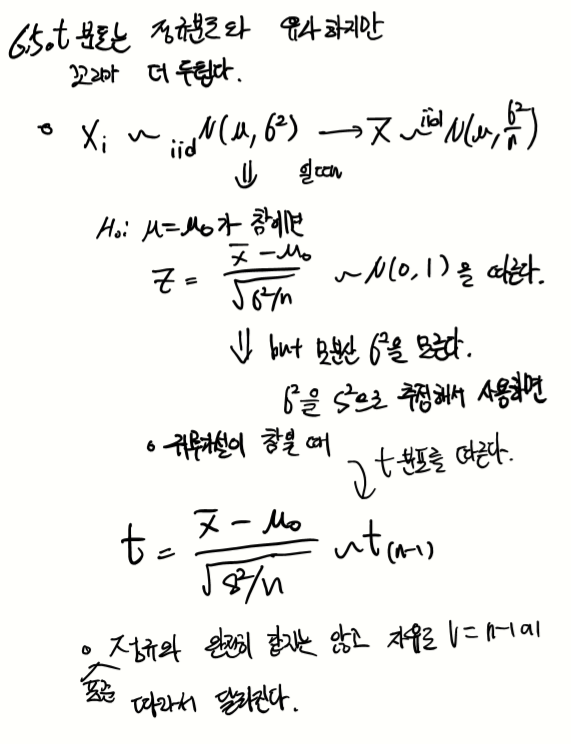 6.5. t 분포는 정규분포와 유사하지만
꼬리가 더 두텁다.
∘ Xᵢ ~ iid N(μ, σ²) → X̄ ~ iid N(μ, σ²/n)
⇓ 일때
H₀: μ=μ₀가 참이면
Z = (x̄ - μ₀) / √(σ²/n) ~ N(0, 1)을 따른다.
⇓ but 모분산 σ²을 모른다.
σ²을 S²으로 추정해서 사용하면
∘ 귀무가설이 참일 때 t 분포를 따른다.
t = (x̄ - μ₀) / √(s²/n) ~ t(n-1)
∘ 표준정규와 완전히 같지는 않고 자유도 ν = n-1에
따라서 달라진다.